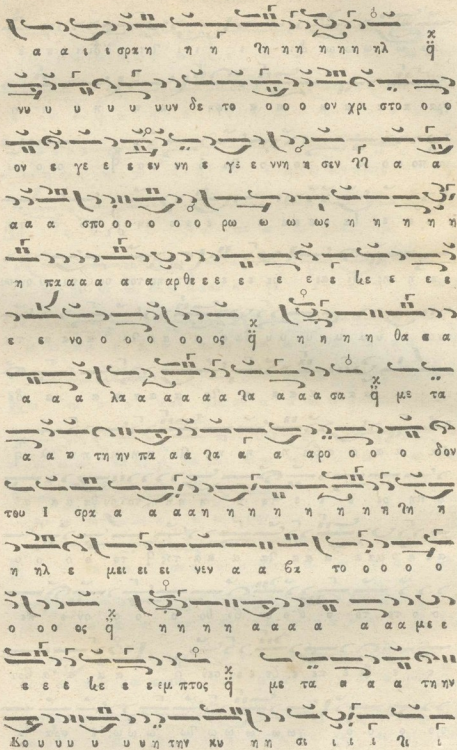 α α ι ι σραη η η λη ηη η η η ηλ
νυ υ υ υ υ υυν δε το ο ο ο ο ον χρι στο ο ο
ον ε γε ε ε εν νη ε γε ε ννη κ σεν α α
α α α σπο ο ο ο ο ο ρω ω ω ως η η η η η
η πα α α α α α α ρ θε ε ε ε ε ε ε ε ε ε ε
ε ε νο ο ο ο ο ο ο ος η η η η θα α α
α α α λα α α α α α α α α α σα με τα
α α υ τη ην πα α α α α α ρο ο ο ο δον
του Ι σρα α α α α η η η η η η η η λη η
η ηλ ε μει ει ει νεν α α βα το ο ο ο ο
ο ο ο ος η η η α α α α α α α με ε
ε ε ε ε ε ε εμ πτος με τα α α α τη ην
Κο υ υ υ υ υ υ η την κυ η η σι ι ι ι ι ι